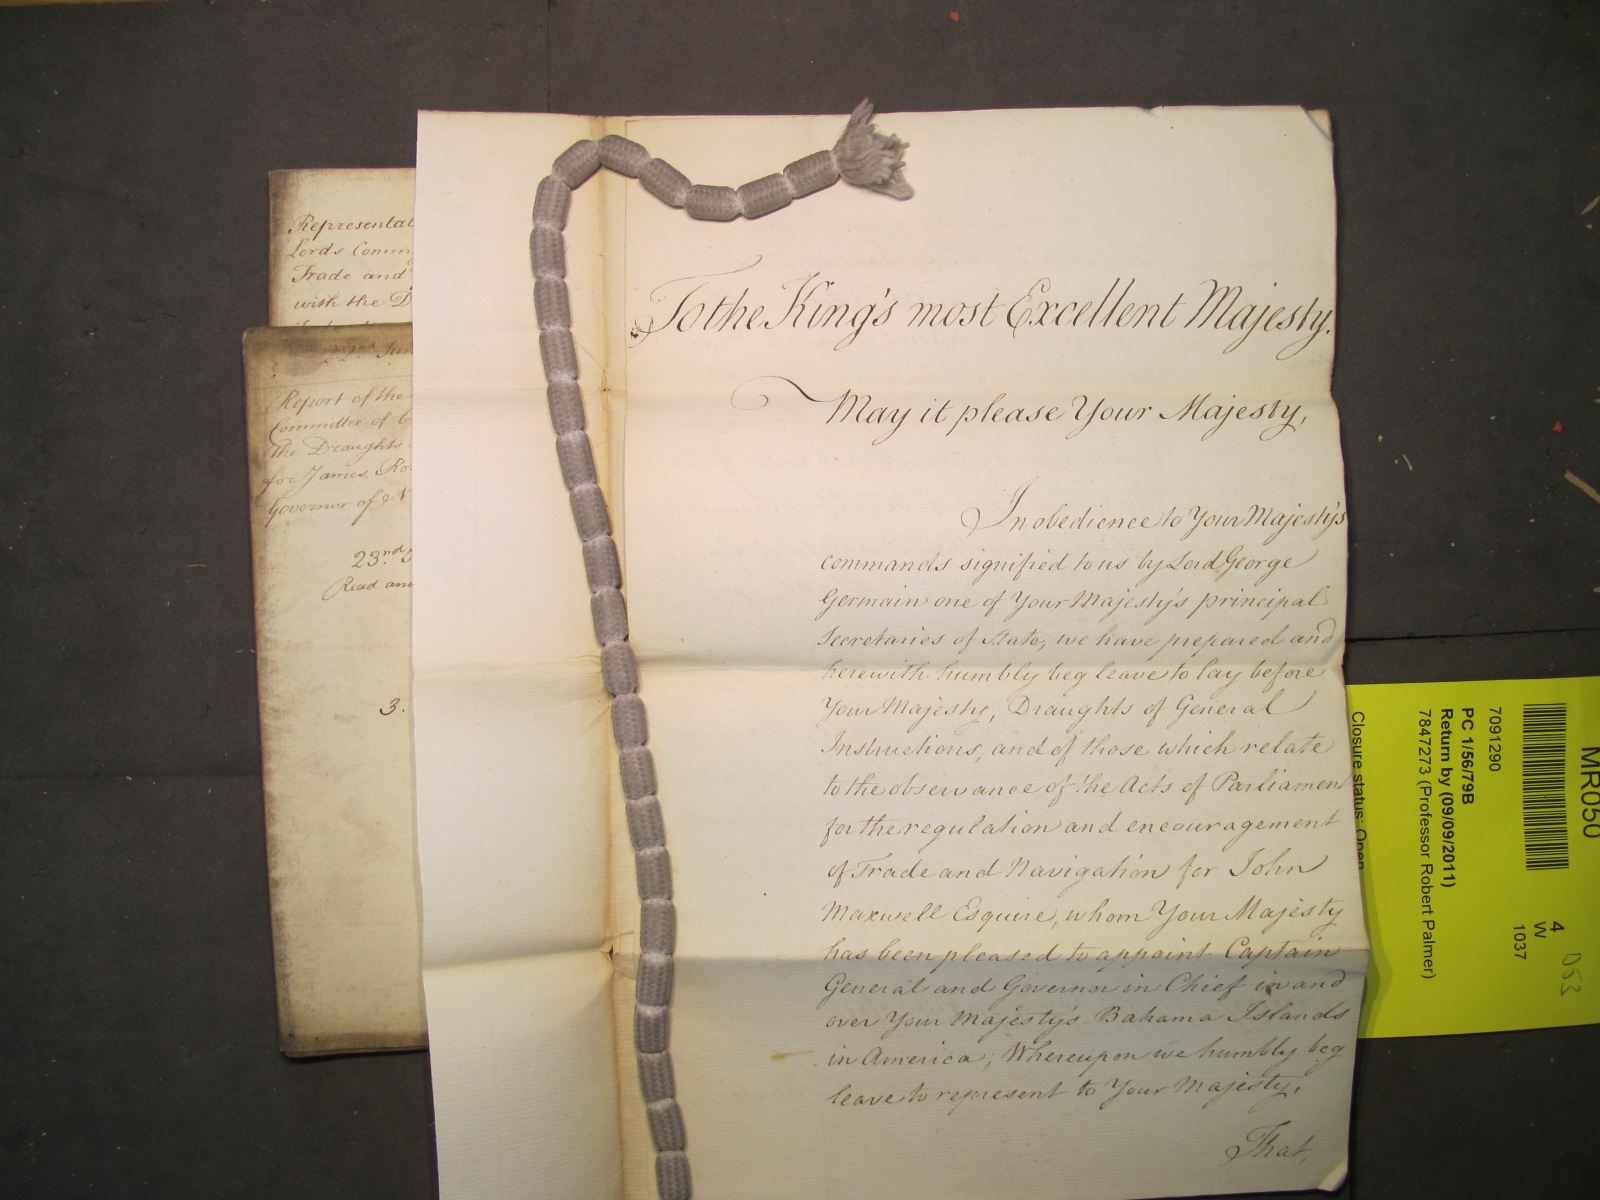 To the King's most Excellent Majesty.
May it please Your Majesty,
In obedience to Your Majesty's
commands signified to us by Lord George
Germain one of Your Majesty's principal
Secretaries of State, we have prepared and
herewith humbly beg leave to lay before
Your Majesty, Draughts of General
Instructions, and of those which relate
to the observance of the Acts of Parliament
for the regulation and encouragement
of Trade and Navigation for John
Maxwell Esquire, whom Your Majesty
has been pleased to appoint Captain
General and Governor in Chief in and
over Your Majesty's Bahama Islands
in America; Whereupon we humbly beg
leave to represent to Your Majesty,
That,
Representat
Lords Comm
Trade and
with the D
22nd Jun
Report of the
Committee of C
the Draughts
for James Ro
Governor of N
23.nd J
Read and
3.
MR050
4
W
1037
D53
7091290
PC 1/56/79B
Return by (09/09/2011)
7847273 (Professor Robert Palmer)
Closure status: Open